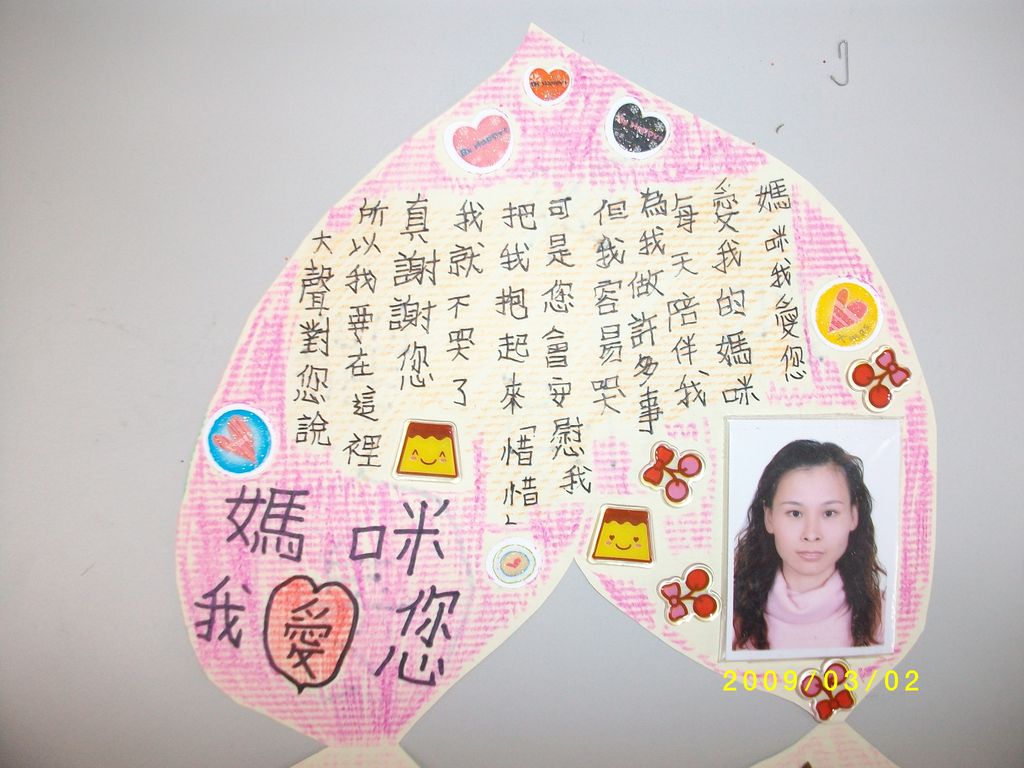 媽咪我愛您
愛我的媽咪
每天陪伴我
為我做許多事
但我容易哭
可是您會安慰我
把我抱起來「惜惜」
我就不哭了
真謝謝您
所以我要在這裡
大聲對您說
媽咪
我愛您
Be Happy!
Be Happy!
Be Happy!
2009/03/02